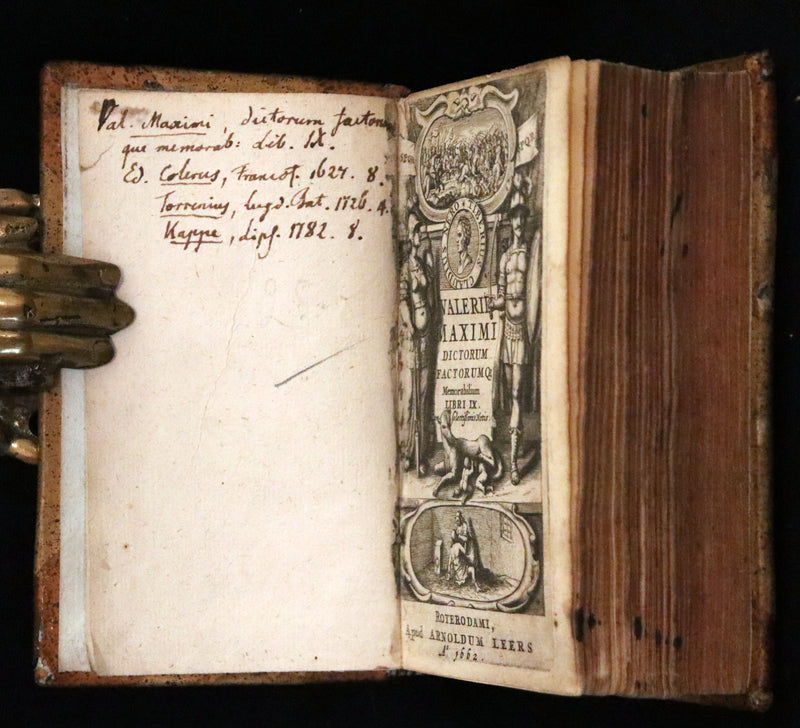 Val. Maximi, dictorum factorum
que memorab: Lib. IX.
Ed. Colerus, Francof. 1627. 8.
Torrenius, Lugd. Bat. 1726. 4.
Kappe, Lips. 1782. 8.
VALERII
MAXIMI
DICTORUM
FACTORUMQ
Memorabilium
LIBRI IX.
ROTERODAMI,
Apud ARNOLDUM LEERS
Aº 1662.